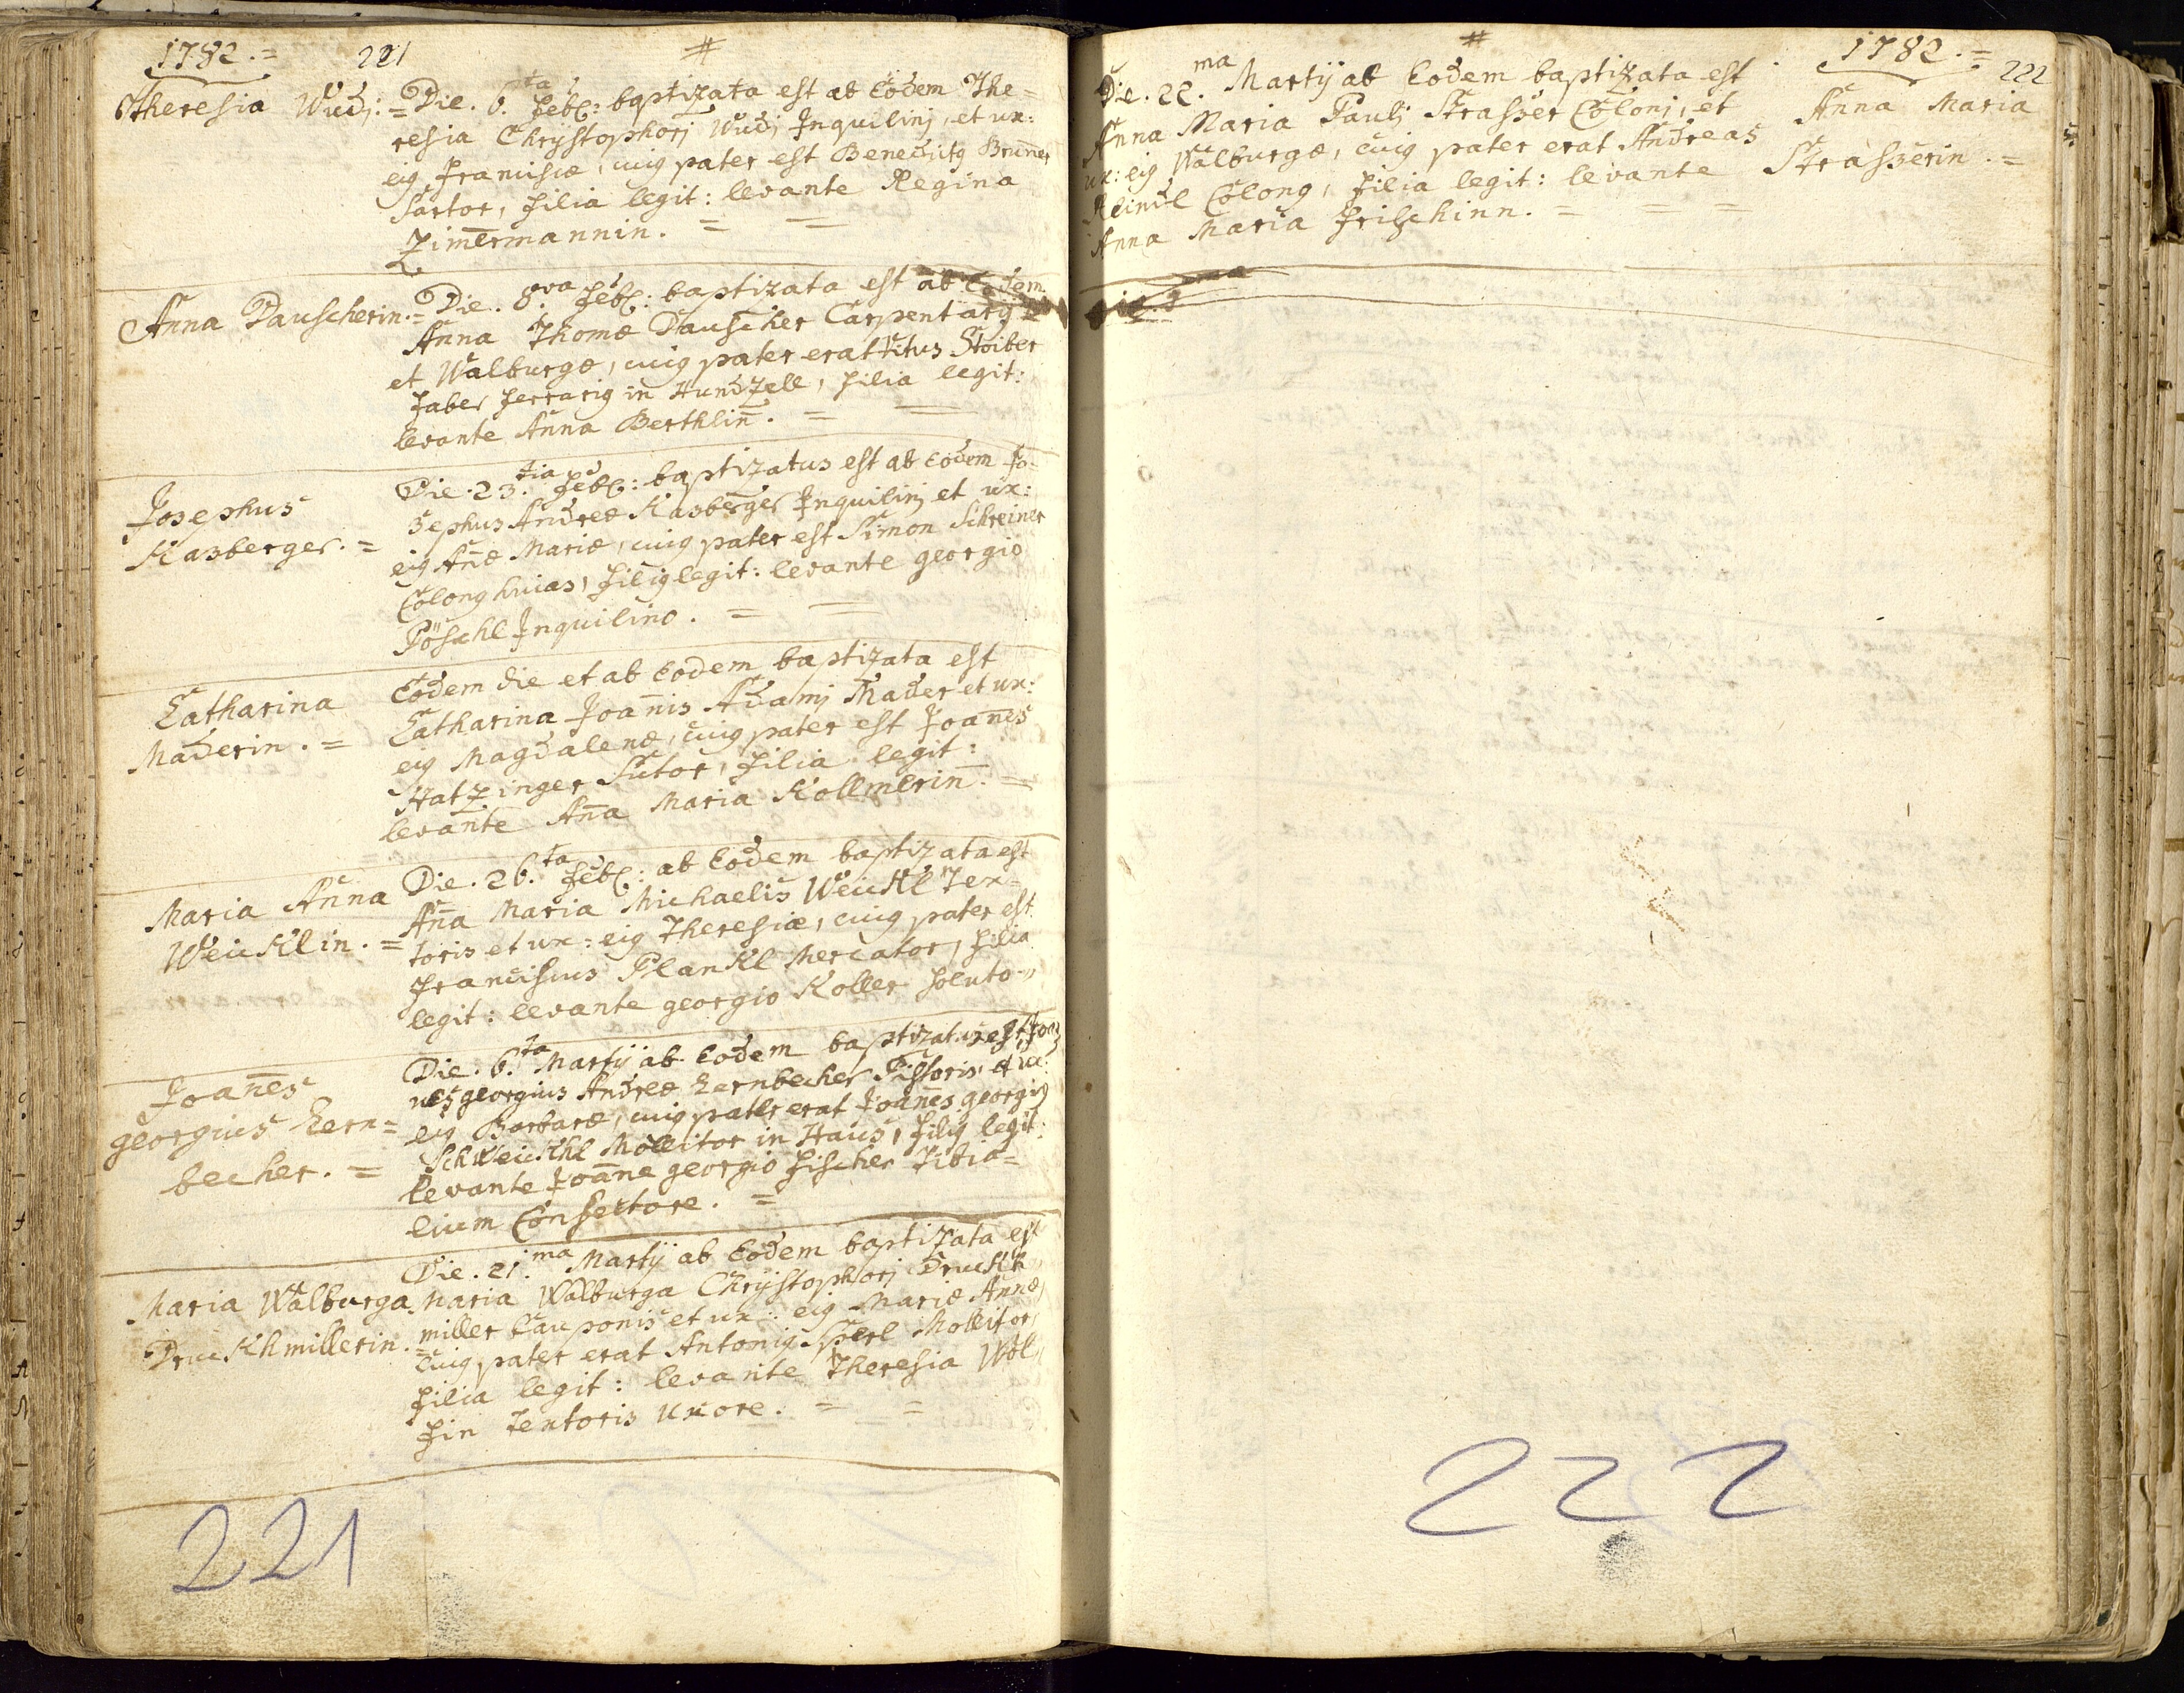 1782. =
221
#
Theresia Wudj: =
Die. 6.ta Feb: baptizata est ab Eodem The=
resia Chrystophorj Wudj Inquilinj, et ux:
eig Franciscæ, cuig pater est Benedictg Brunner
Sartor, Filia legit: levante Regina
Zimermannin. = =
Anna Dauscherin. =
Die. 8.va Feb: baptizata est ab Eodem
Anna Thomæ Dauscher Carpentarÿ
et Walburgæ, cuig pater erat Vitus Stoiber
Faber Ferrarig in Hundzell, Filia legit:
levante Anna Berthlin̄. = =
Josephus
Kasberger. =
Die. 23.tia Feb: baptizatus est ab Eodem Jo=
sephus Andreæ Kasberger Inquilinj et ux:
eig An̄æ Mariæ, cuig pater est Simon Schreiner
Colong huias, Filig legit: levante georgio
Pöschl Inquilino. = =
Catharina
Maderin. =
Eodem die et ab Eodem baptizata est
Catharina Joan̄is Adamj Mader et ux:
eig Magdalenæ, cuig pater est Joan̄es
Hatzinger Sutor, Filia legit:
levante An̄a Maria Kollmerin̄. =
Maria Anna
Weicklin. =
Die. 26.ta Feb: ab Eodem baptizata est
An̄a Maria Michaelis Weickl Tex=
toris et ux: eig Theresiæ, cuig pater est
Franciscus Plankl Mercator, Filia
legit: levante georgio Koller soluto.
Joan̄es
georgius Zern=
becher. =
Die. 6.ta Martÿ ab Eodem baptizatus est Joan̄
nes georgius Andreæ Zernbecher Pistoris et ux:
eig Barbaræ, cuig pater erat Joan̄es georgig
Schweickhl Mollitor in Haus, Filig legit:
levante Joan̄e georgio Fischer Tibia=
lium Confectore. =
Maria Walburga
Druckhmillerin. =
Die. 21.ma Martÿ ab Eodem baptizata est
Maria Walburga Chrÿstophorj Druckh=
miller Cauponis et ux: eig Mariæ Annæ,
cuig pater erat Antonig Perl Mollitor,
Filia legit: levante Theresia Wöl=
fin Textoris Uxore. = =
221
#
1782. =
222
Die. 22.ma Martÿ ab Eodem baptizata est
Anna Maria Paulj Strasser Colonj, et
ux: eig Walburgæ, cuig pater erat Andreas
Kleindl Colong, Filia legit: levante
Anna Maria Frischinn. = = =
Anna Maria
Strasserin. =
222